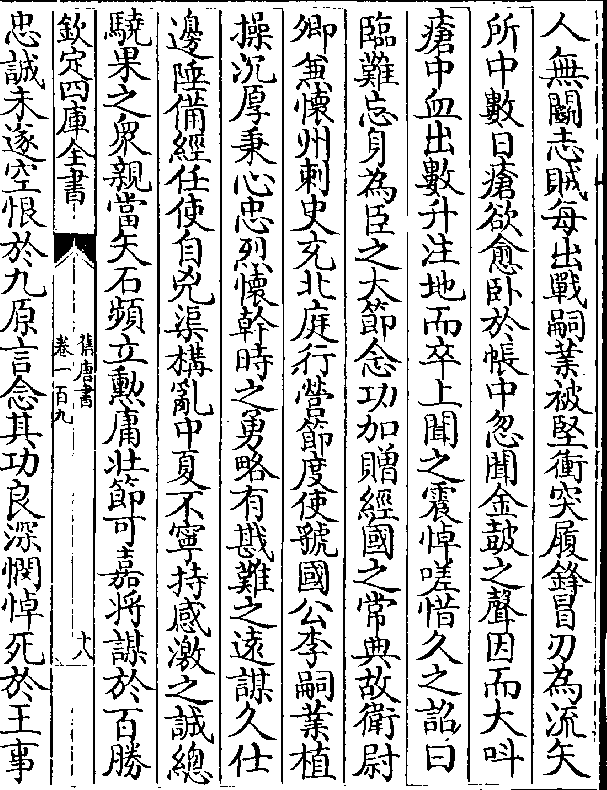 人無鬬志賊每出戰嗣業被堅衝突履鋒冒刃為流矢
所中數日瘡欲愈卧於帳中忽聞金鼓之聲因而大呌
瘡中血出數升注地而卒上聞之震悼嗟惜久之詔曰
臨難忘身為臣之大節念功加贈經國之常典故衛尉
卿兼懷州刺史充北庭行營節度使虢國公李嗣業植
操沉厚秉心忠烈懷幹時之勇略有戡難之遠謀久仕
邊陲備經任使自兇渠構亂中夏不寧持感激之誠總
驍果之衆親當矢石頻立勲庸壮節可嘉将謀於百勝
欽定四庫全書
舊唐書
卷一百九
十八
忠誠未遂空恨於九原言念其功良深憫悼死於王事